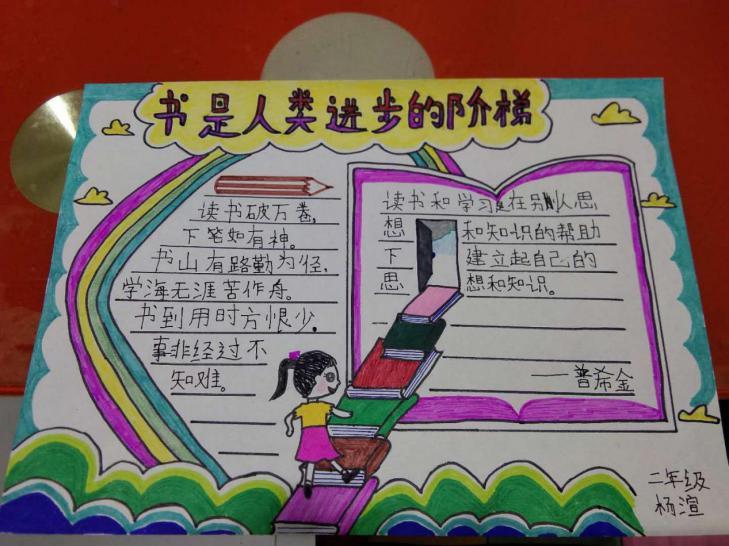 书是人类进步的阶梯
读书破万卷,
下笔如有神。
书山有路勤为径,
学海无涯苦作舟。
书到用时方恨少,
事非经过不
知难。
读书和学习是在别人思
想和知识的帮助
下建立起自己的
思想和知识。
——普希金
二年级
杨渲